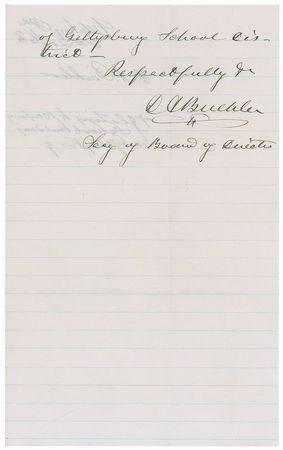 of Gettysburg School Dis-
trict —
Respectfully &c
D A Buehler
Secy of Board of Directs